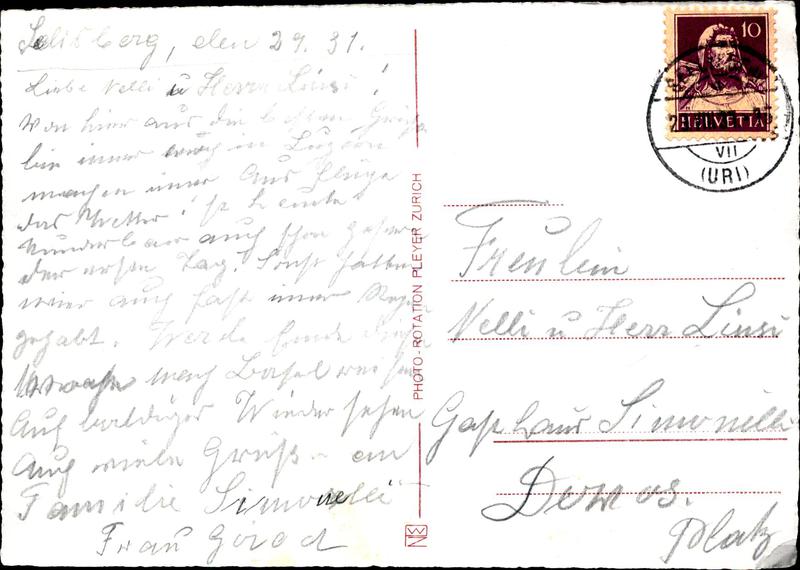 Selisberg, den 29. 31.
Liebe Nelli u Herr Linsi!
Von hier aus die besten Grüße
bin immer noch in Luzern
machen immer Ausflüge
das Wetter ist heute
wunderbar auch schon gestern
der ersten Tag. Sonst hatten
wier auch fast immer Regen
gehabt. Werde Ende
nach Basel reisen
Auf baldiges Wieder sehen
Auch viele Grüße an
Familie Simonelli
Frau Girod
PHOTO-ROTATION PLEYER ZURICH
10
HELVETIA
VII
(URI)
Freulein
Nelli u Herr Linsi
Gasthaus Simonelli
Davos.
Platz